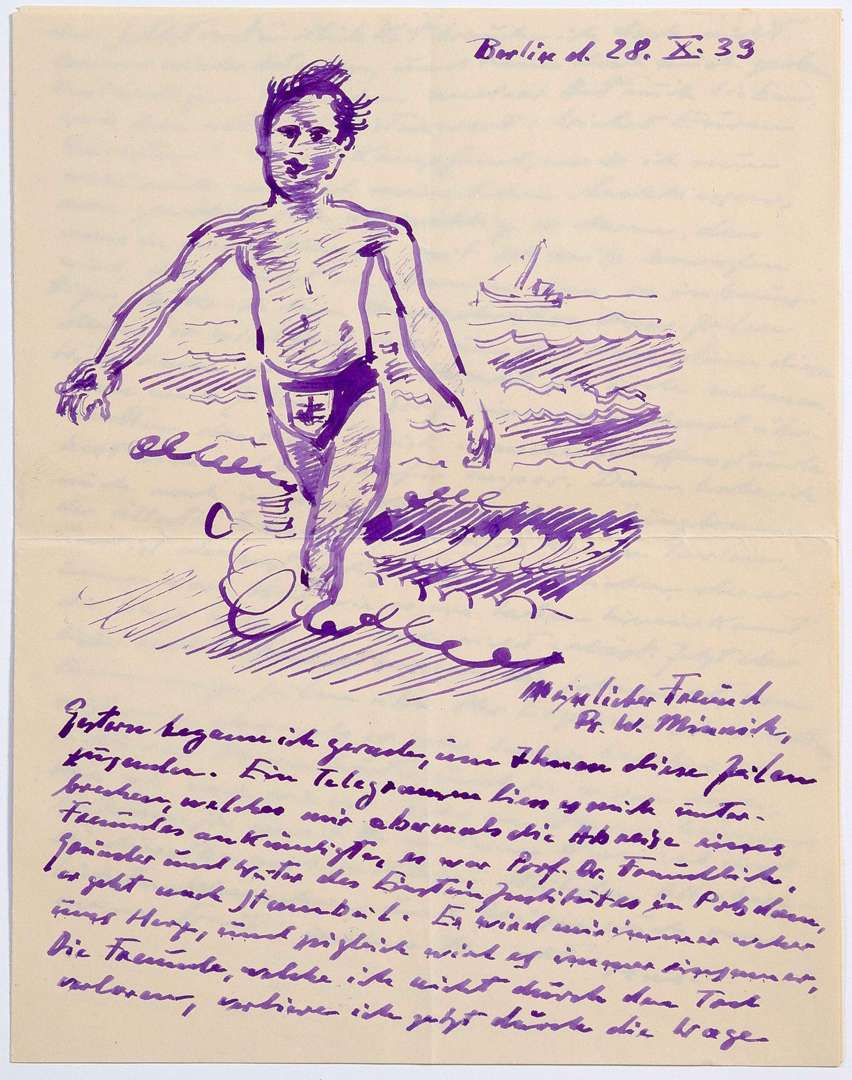 Berlin d. 28. X. 33
Mein lieber Freund
Dr. W. Minnich,
Gestern begann ich gerade, um Ihnen diese Zeilen
Ein Telegramm liess es mich unter-
brechen, welches mir abermals die Abreise eines
Freundes ankündigte, es war Prof. Dr. Freundlich,
Gründer und Leiter des Einstein Institutes in Potsdam,
er geht nach Stambul. Es wird mir immer weher
ums Herz, und zugleich wird es immer einsamer,
Die Freunde, welche ich nicht durch den Tod
verloren, verliere ich jetzt durch die Wege